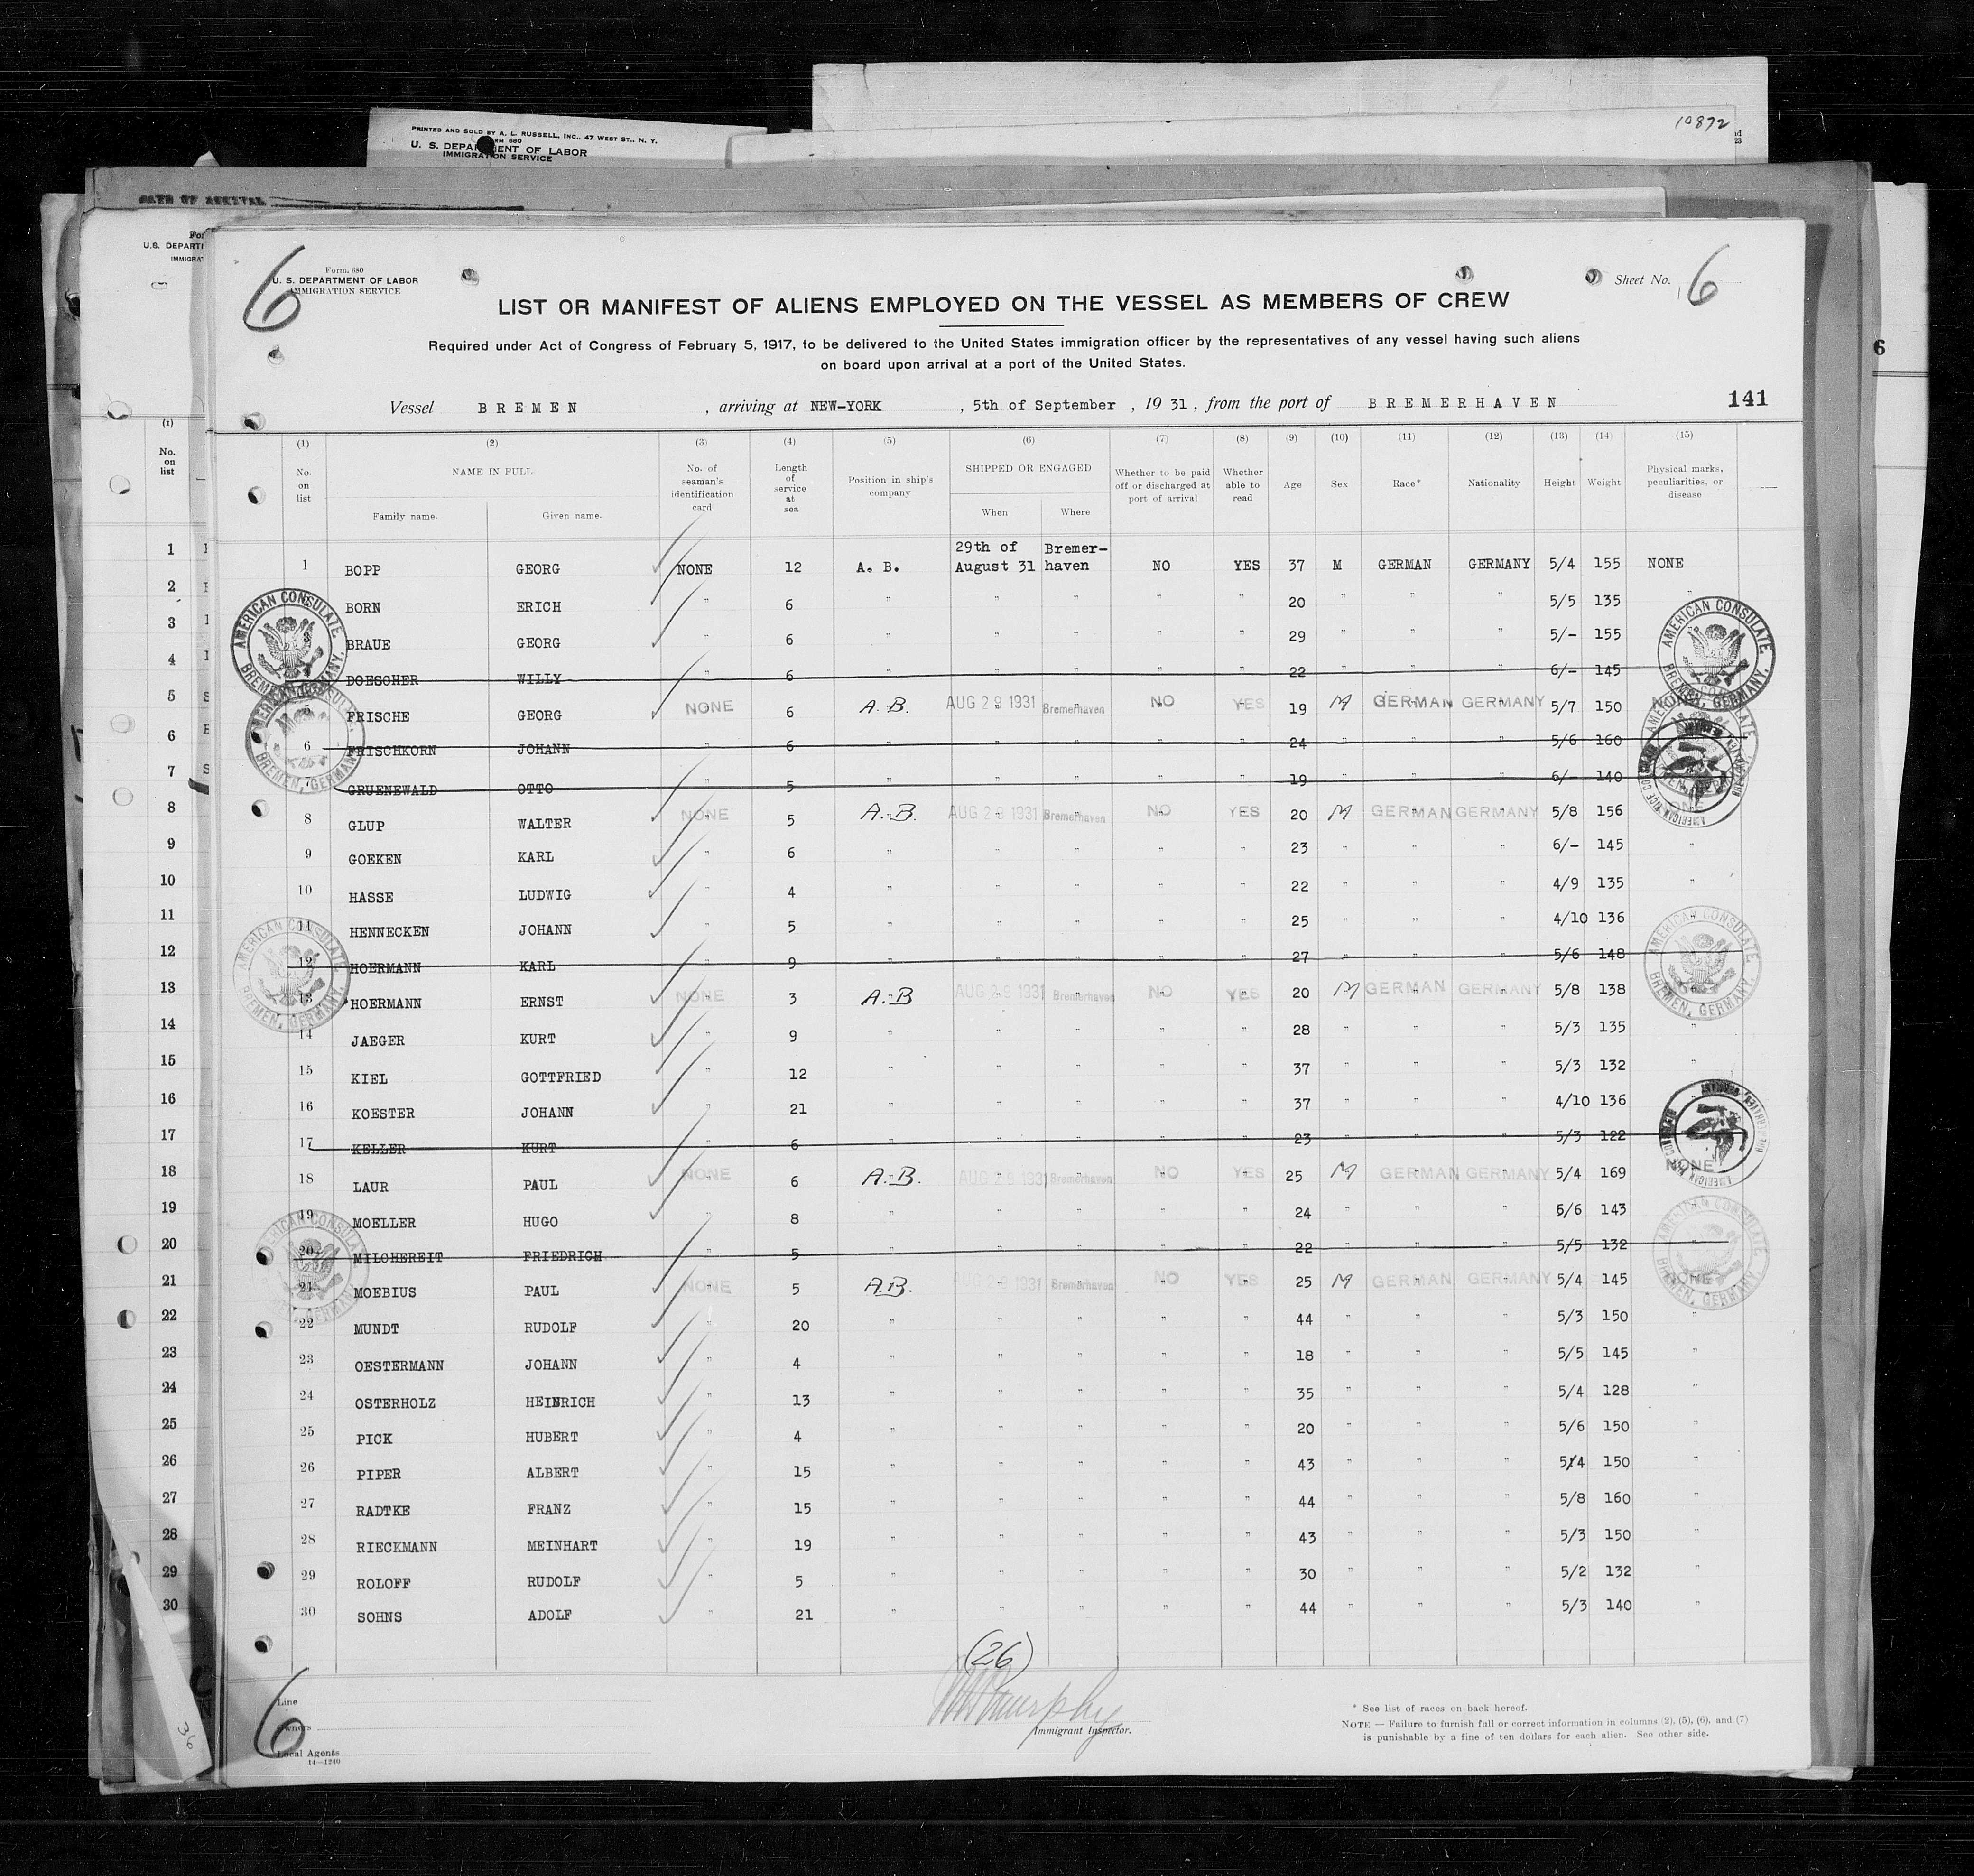 10872
PRINTED AND SOLD BY A. L. RUSSELL, INC., 47 WEST ST., N. Y.
U. S. DEPARTMENT OF LABOR
IMMIGRATION SERVICE
DATE OF ARRIVAL
6
Form. 680
U. S. DEPARTMENT OF LABOR
IMMIGRATION SERVICE
Sheet No. 6
LIST OR MANIFEST OF ALIENS EMPLOYED ON THE VESSEL AS MEMBERS OF CREW
Required under Act of Congress of February 5, 1917, to be delivered to the United States immigration officer by the representatives of any vessel having such aliens
on board upon arrival at a port of the United States.
Vessel BREMEN , arriving at NEW-YORK , 5th of September , 19 31, from the port of BREMERHAVEN 141
(1) (2) (3) (4) (5) (6) (7) (8) (9) (10) (11) (12) (13) (14) (15)
No. on list NAME IN FULL Family name. Given name. No. of seaman's identification card Length of service at sea Position in ship's company SHIPPED OR ENGAGED When Where Whether to be paid off or discharged at port of arrival Whether able to read Age Sex Race* Nationality Height Weight Physical marks, peculiarities, or disease
1 BOPP GEORG NONE 12 A. B. 29th of August 31 Bremer-haven NO YES 37 M GERMAN GERMANY 5/4 155 NONE
BORN ERICH " 6 " " " " " 20 " " " 5/5 135 "
BRAUE GEORG " 6 " " " " " 29 " " " 5/- 155
DOESCHER WILLY " 6 " " " " " 22 " " " 6/- 145
FRISCHE GEORG NONE 6 A.B. AUG 29 1931 Bremerhaven NO YES 19 M GERMAN GERMANY 5/7 150 NONE
6 FRISCHKORN JOHANN " 6 " " " " " 24 " " " 5/6 160
7 GRUENEWALD OTTO " 5 " " " " " 19 " " " 6/- 140
8 GLUP WALTER NONE 5 A.B. AUG 29 1931 Bremerhaven NO YES 20 M GERMAN GERMANY 5/8 156 NONE
9 GOEKEN KARL " 6 " " " " " 23 " " " 6/- 145 "
10 HASSE LUDWIG " 4 " " " " " 22 " " " 4/9 135 "
11 HENNECKEN JOHANN " 5 " " " " " 25 " " " 4/10 136
12 HOERMANN KARL " 9 " " " " " 27 " " " 5/6 148
13 HOERMANN ERNST NONE 3 A.B AUG 29 1931 Bremerhaven NO YES 20 M GERMAN GERMANY 5/8 138
14 JAEGER KURT " 9 " " " " " 28 " " " 5/3 135 "
15 KIEL GOTTFRIED " 12 " " " " " 37 " " " 5/3 132 "
16 KOESTER JOHANN " 21 " " " " " 37 " " " 4/10 136 "
17 KELLER KURT " 6 " " " " " 23 " " " 5/3 122
18 LAUR PAUL NONE 6 A.B. AUG 29 1931 Bremerhaven NO YES 25 M GERMAN GERMANY 5/4 169 NONE
19 MOELLER HUGO " 8 " " " " " 24 " " " 5/6 143
20 MILCHEREIT FRIEDRICH " 5 " " " " " 22 " " " 5/5 132
21 MOEBIUS PAUL NONE 5 A.B. AUG 29 1931 Bremerhaven NO YES 25 M GERMAN GERMANY 5/4 145 NONE
22 MUNDT RUDOLF " 20 " " " " " 44 " " " 5/3 150 "
23 OESTERMANN JOHANN " 4 " " " " " 18 " " " 5/5 145 "
24 OSTERHOLZ HEINRICH " 13 " " " " " 35 " " " 5/4 128 "
25 PICK HUBERT " 4 " " " " " 20 " " " 5/6 150 "
26 PIPER ALBERT " 15 " " " " " 43 " " " 5/4 150 "
27 RADTKE FRANZ " 15 " " " " " 44 " " " 5/8 160 "
28 RIECKMANN MEINHART " 19 " " " " " 43 " " " 5/3 150 "
29 ROLOFF RUDOLF " 5 " " " " " 30 " " " 5/2 132 "
30 SOHNS ADOLF " 21 " " " " " 44 " " " 5/3 140 "
AMERICAN CONSULATE BREMEN, GERMANY.
(26)
Murphy
Immigrant Inspector.
6
Line
Owners
Local Agents
14—1240
* See list of races on back hereof.
NOTE — Failure to furnish full or correct information in columns (2), (5), (6), and (7)
is punishable by a fine of ten dollars for each alien. See other side.
36